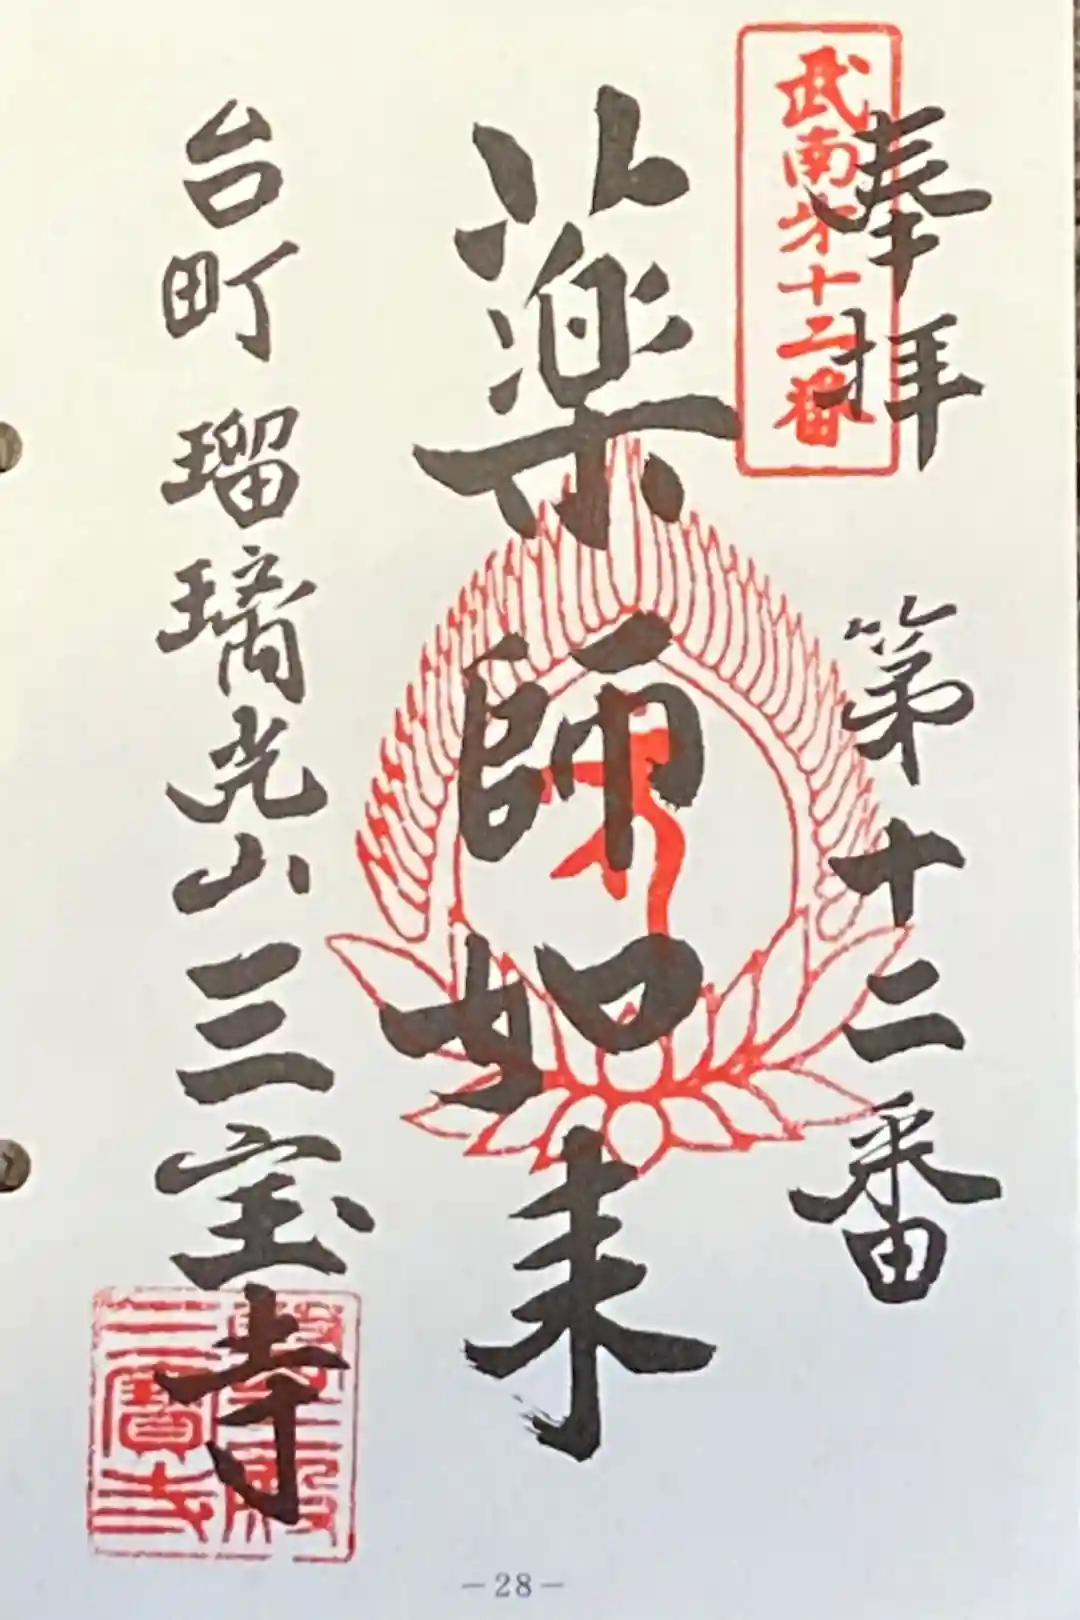 奉拝 第十二番
武南第十二番
薬師如来
台町 瑠璃光山三宝寺
三寳寺
－28－